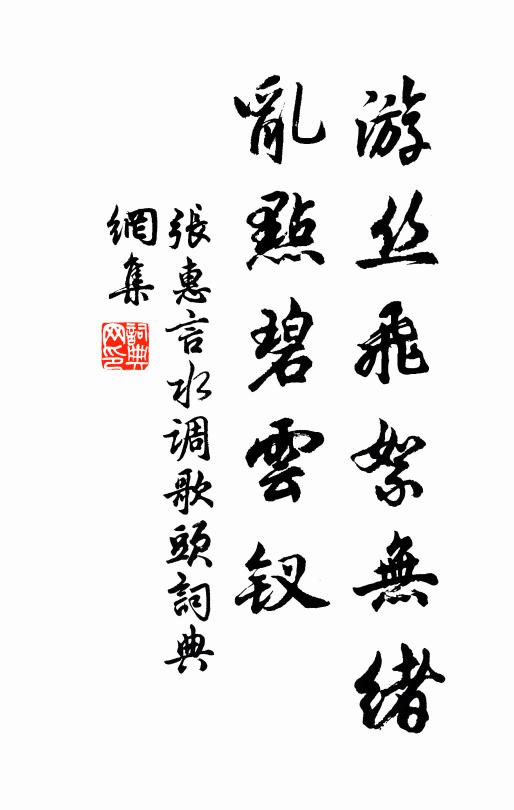 游丝飛絮無緒
亂點碧雲釵
張惠言水调歌頭詞典
網集
詞典网印